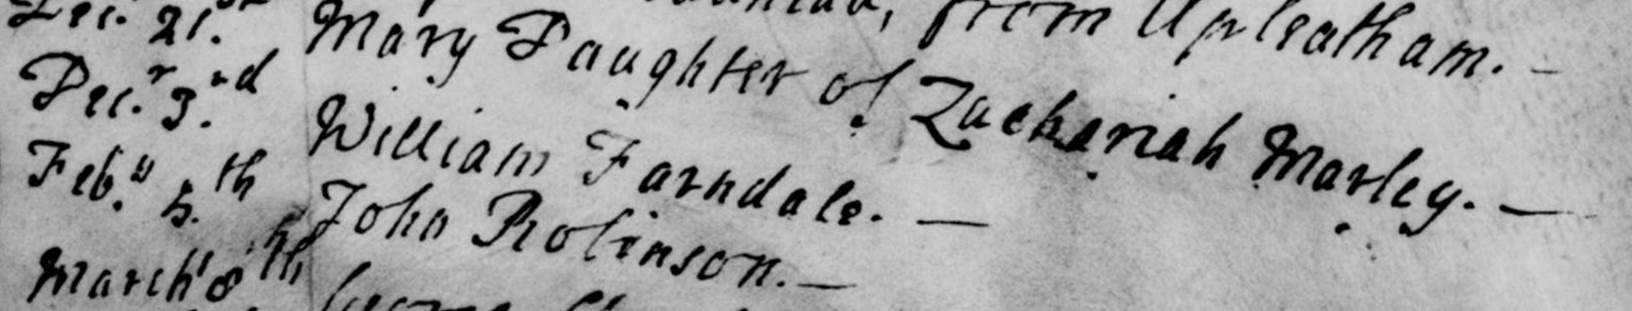 from Upleatham. —
Dec. 21.st Mary Daughter of Zachariah Marley. —
Dec.r 3.rd William Farndale. —
Feb.y 5.th John Robinson. —
March 8th George